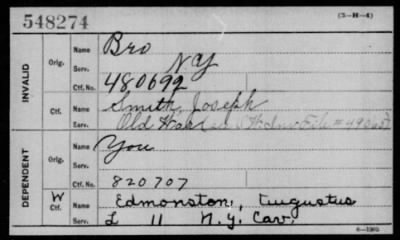 548274
(3-H-4)
INVALID
Orig.
Name Bro
Serv. NY
Ctf. No. 480692
Ctf.
Name Smith, Joseph
Serv. Old War
DEPENDENT
Orig.
Name You
Serv.
Ctf. No. 820707
W
Ctf.
Name Edmonston, Augustus
Serv. L 11 N.Y. Cav.